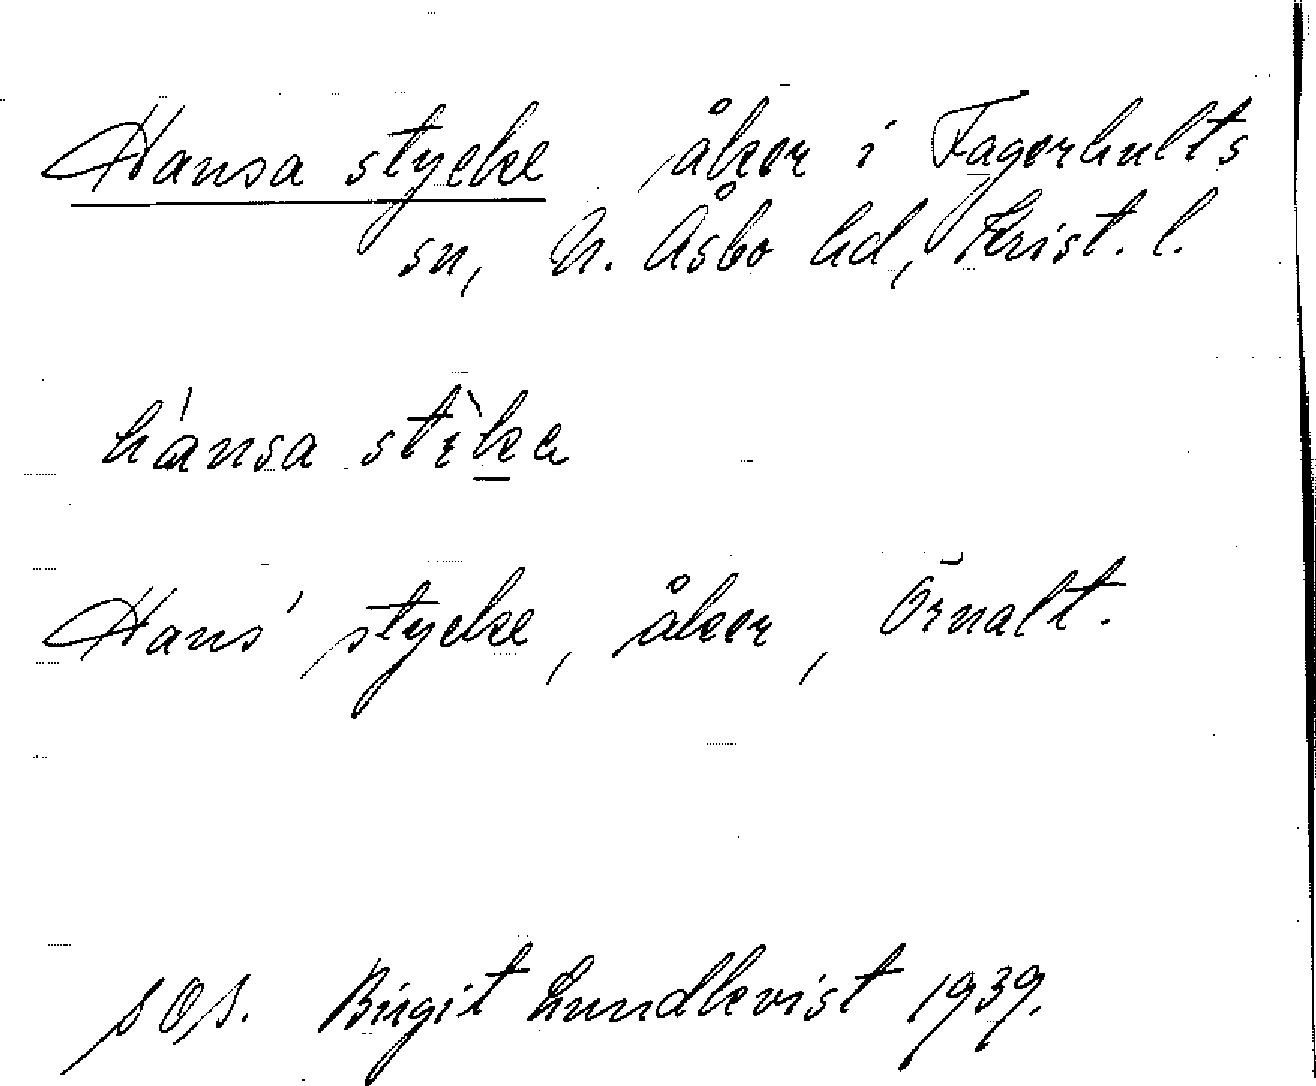 Hansa stycke åker i Fagerhults
sn, N. Åsbo hd, Krist. l.
hánsa stìka
Hans' stycke, åker, Örnalt.
SOS. Birgit Lundkvist 1939.